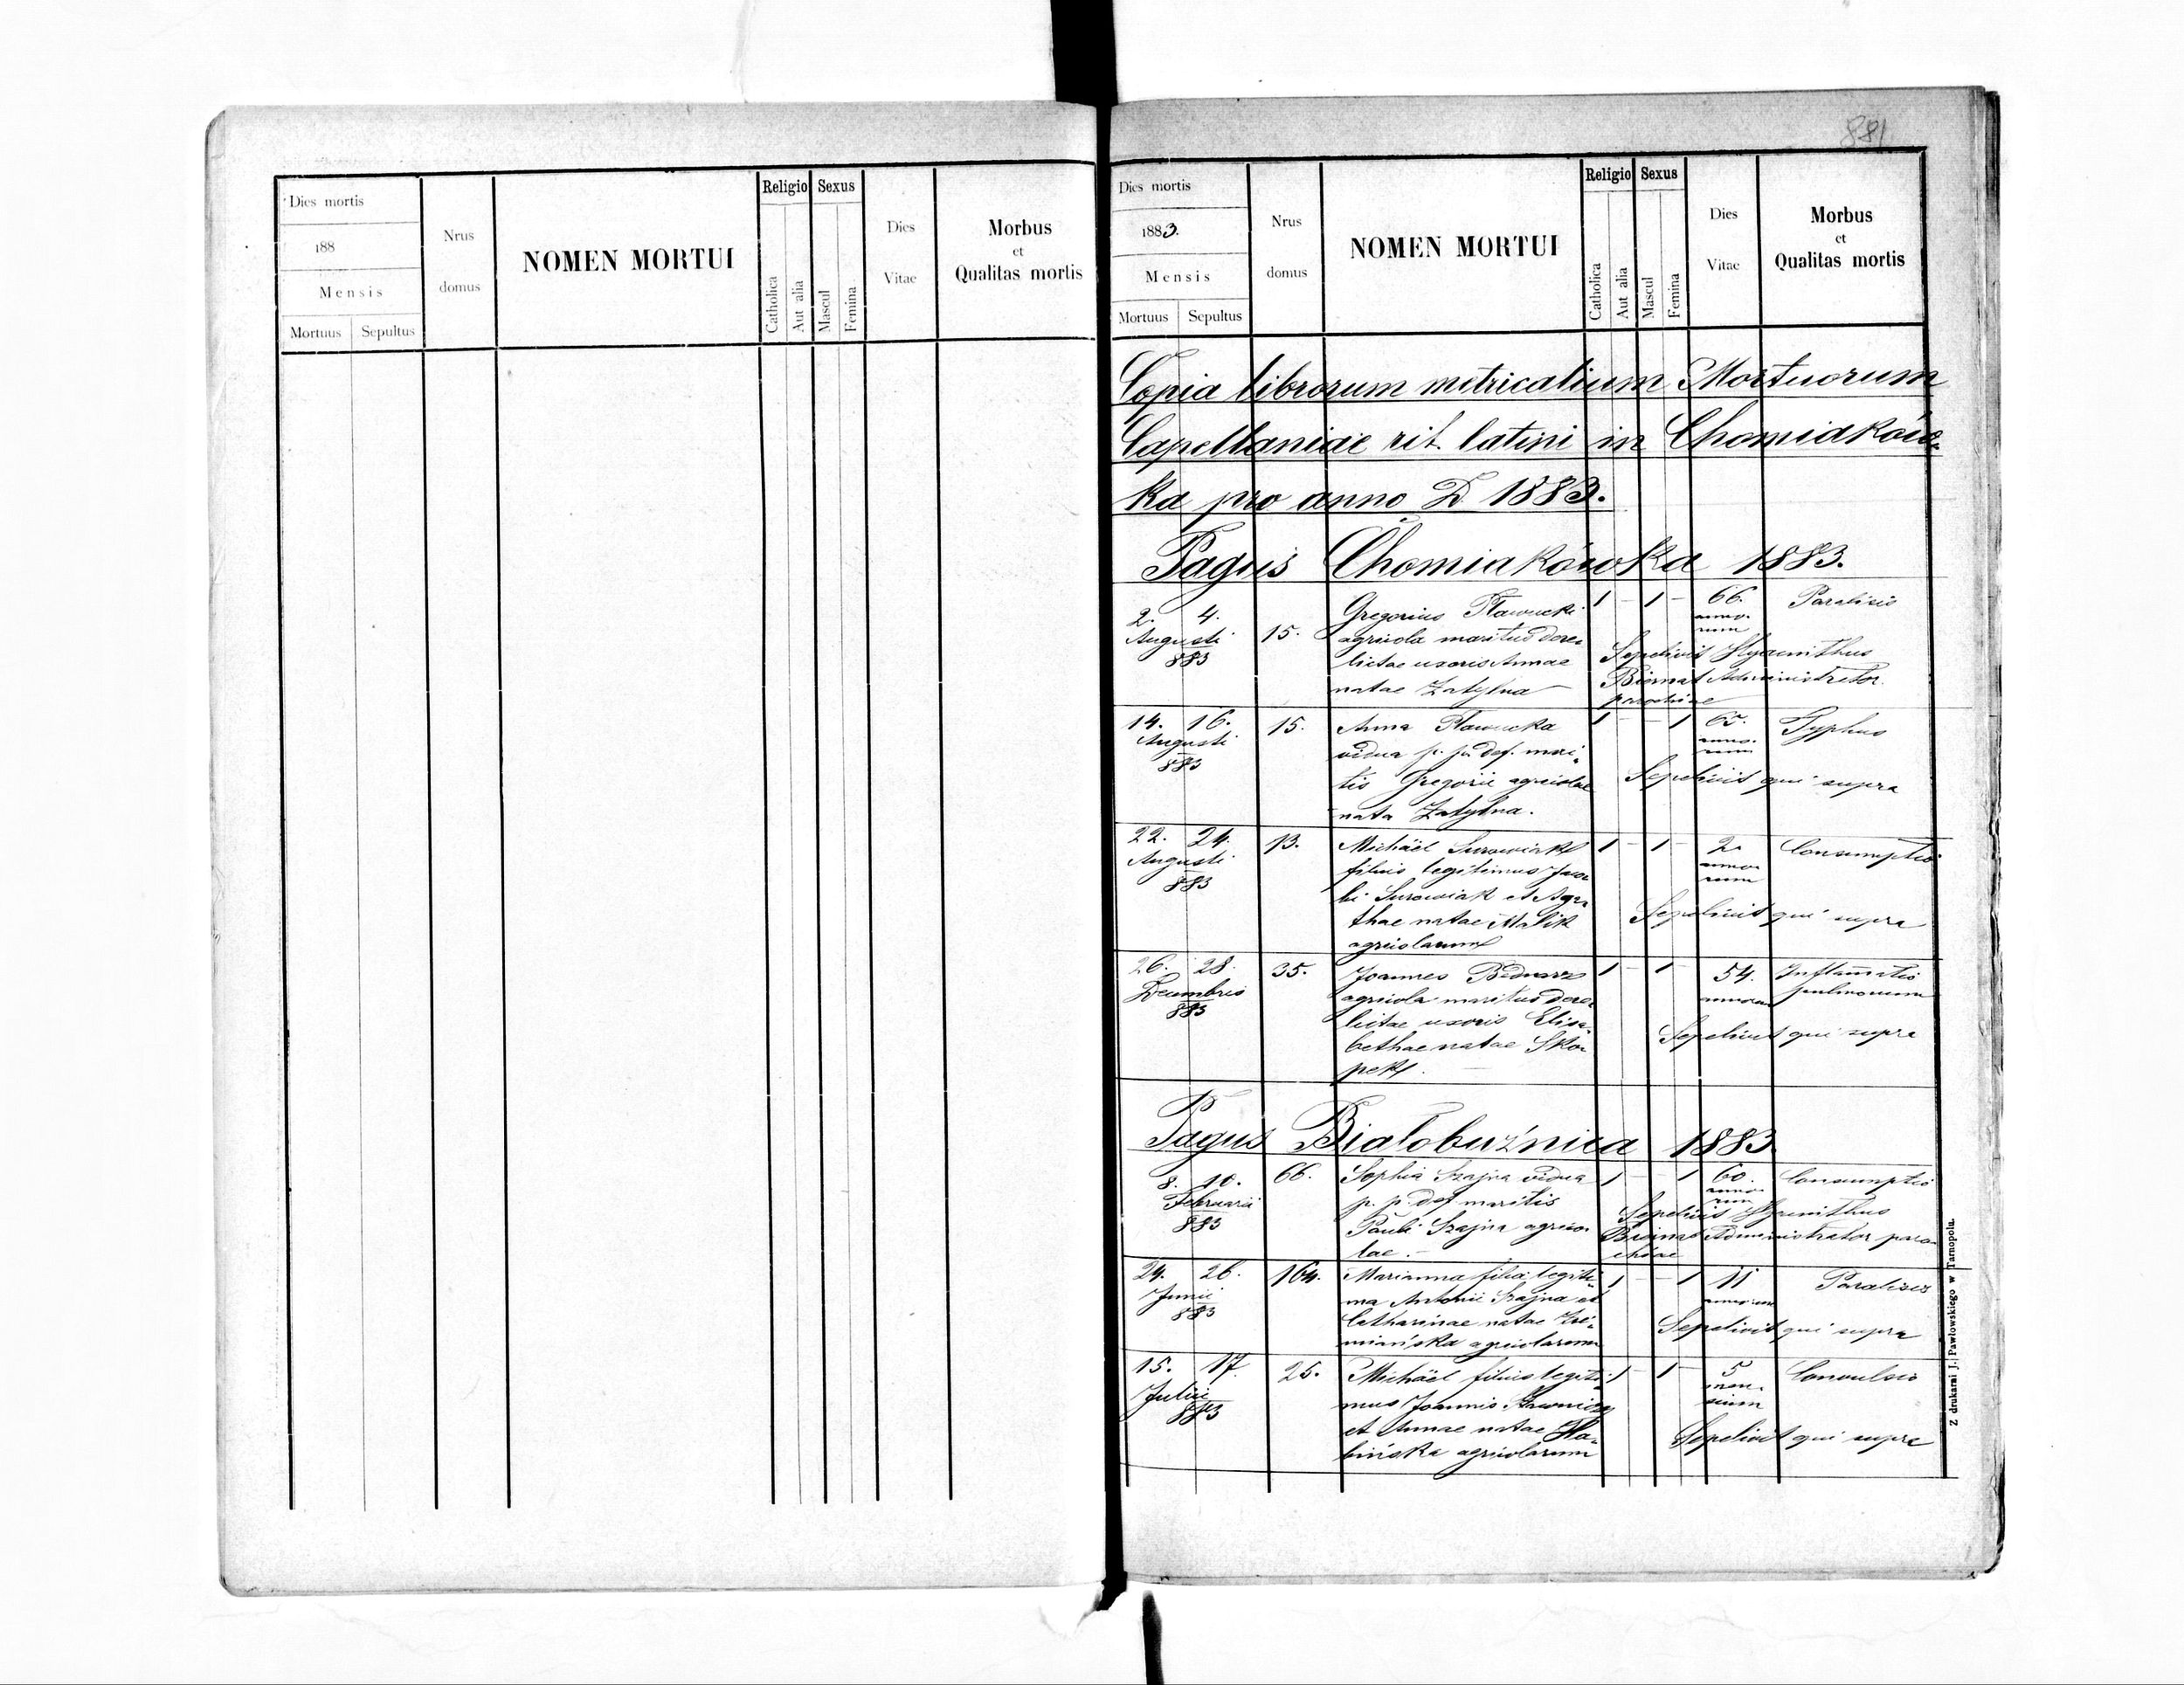 Dies mortis
188
Mensis
Mortuus Sepultus
Nrus
domus
NOMEN MORTUI
Religio
Catholica
Aut alia
Sexus
Mascul
Femina
Dies
Vitae
Morbus
et
Qualitas mortis
881
Dies mortis
1883.
Mensis
Mortuus Sepultus
Nrus
domus
NOMEN MORTUI
Religio
Catholica
Aut alia
Sexus
Mascul
Femina
Dies
Vitae
Morbus
et
Qualitas mortis
Copia librorum metricalium Mortuorum
Capellaniae rit. latini in Chomiaków-
ka pro anno D 1883.
Pagus Chomiakówka 1883.
2. 4.
Augusti
883
15.
Gregorius
agricola maritus dere-
lictae uxoris Annae
natae Zatylna
1 - 1 -
66.
anno-
rum
Paralisis
Sepelivit Hyacinthus
Biernat Administrator
parochiae
14. 16.
Augusti
883
15.
Anna
vidua p. p. def. mari-
tis Gregorii agricolae
nata Zatylna.
1 - - 1
65.
anno-
rum
Typhus
Sepelivit qui supra
22. 24.
Augusti
883
13.
Michäel Surowiak
filius legitimus Jaco-
bi Surowiak et Aga-
thae natae Malik
agricolarum
1 - 1 -
2.
anno-
rum
Consumptio
Sepelivit qui supra
26. 28.
Decembris
883
35.
Joannes Bednarz
agricola maritus dere-
lictae uxoris Elisa-
bethae natae Sko-
pek.
1 - 1 -
54.
annorum
Inflamatio
pulmonum
Sepelivit qui supra
Pagus Białobuźnica 1883
8. 10.
Februarii
883
66.
Sophia Szajna vidua
p. p. def maritis
Pauli Szajna agrico-
lae.
1 - - 1
60.
anno-
rum
Consumptio
Sepelivit Hyacinthus
Biernat Administrator paro-
chiae
24. 26.
Junii
883
164.
Marianna filia legiti-
ma Antonii Szajna et
Catharinae natae
agricolarum
1 - - 1
11
annorum
Paralisis
Sepelivit qui supra
15. 17.
Julii
883
25.
Michäel filius legiti-
mus Joannis
et Annae natae
agricolarum
1 - 1 -
5
men-
sium
Convulsio
Sepelivit qui supra
Z drukarni J. Pawłowskiego w Tarnopolu.